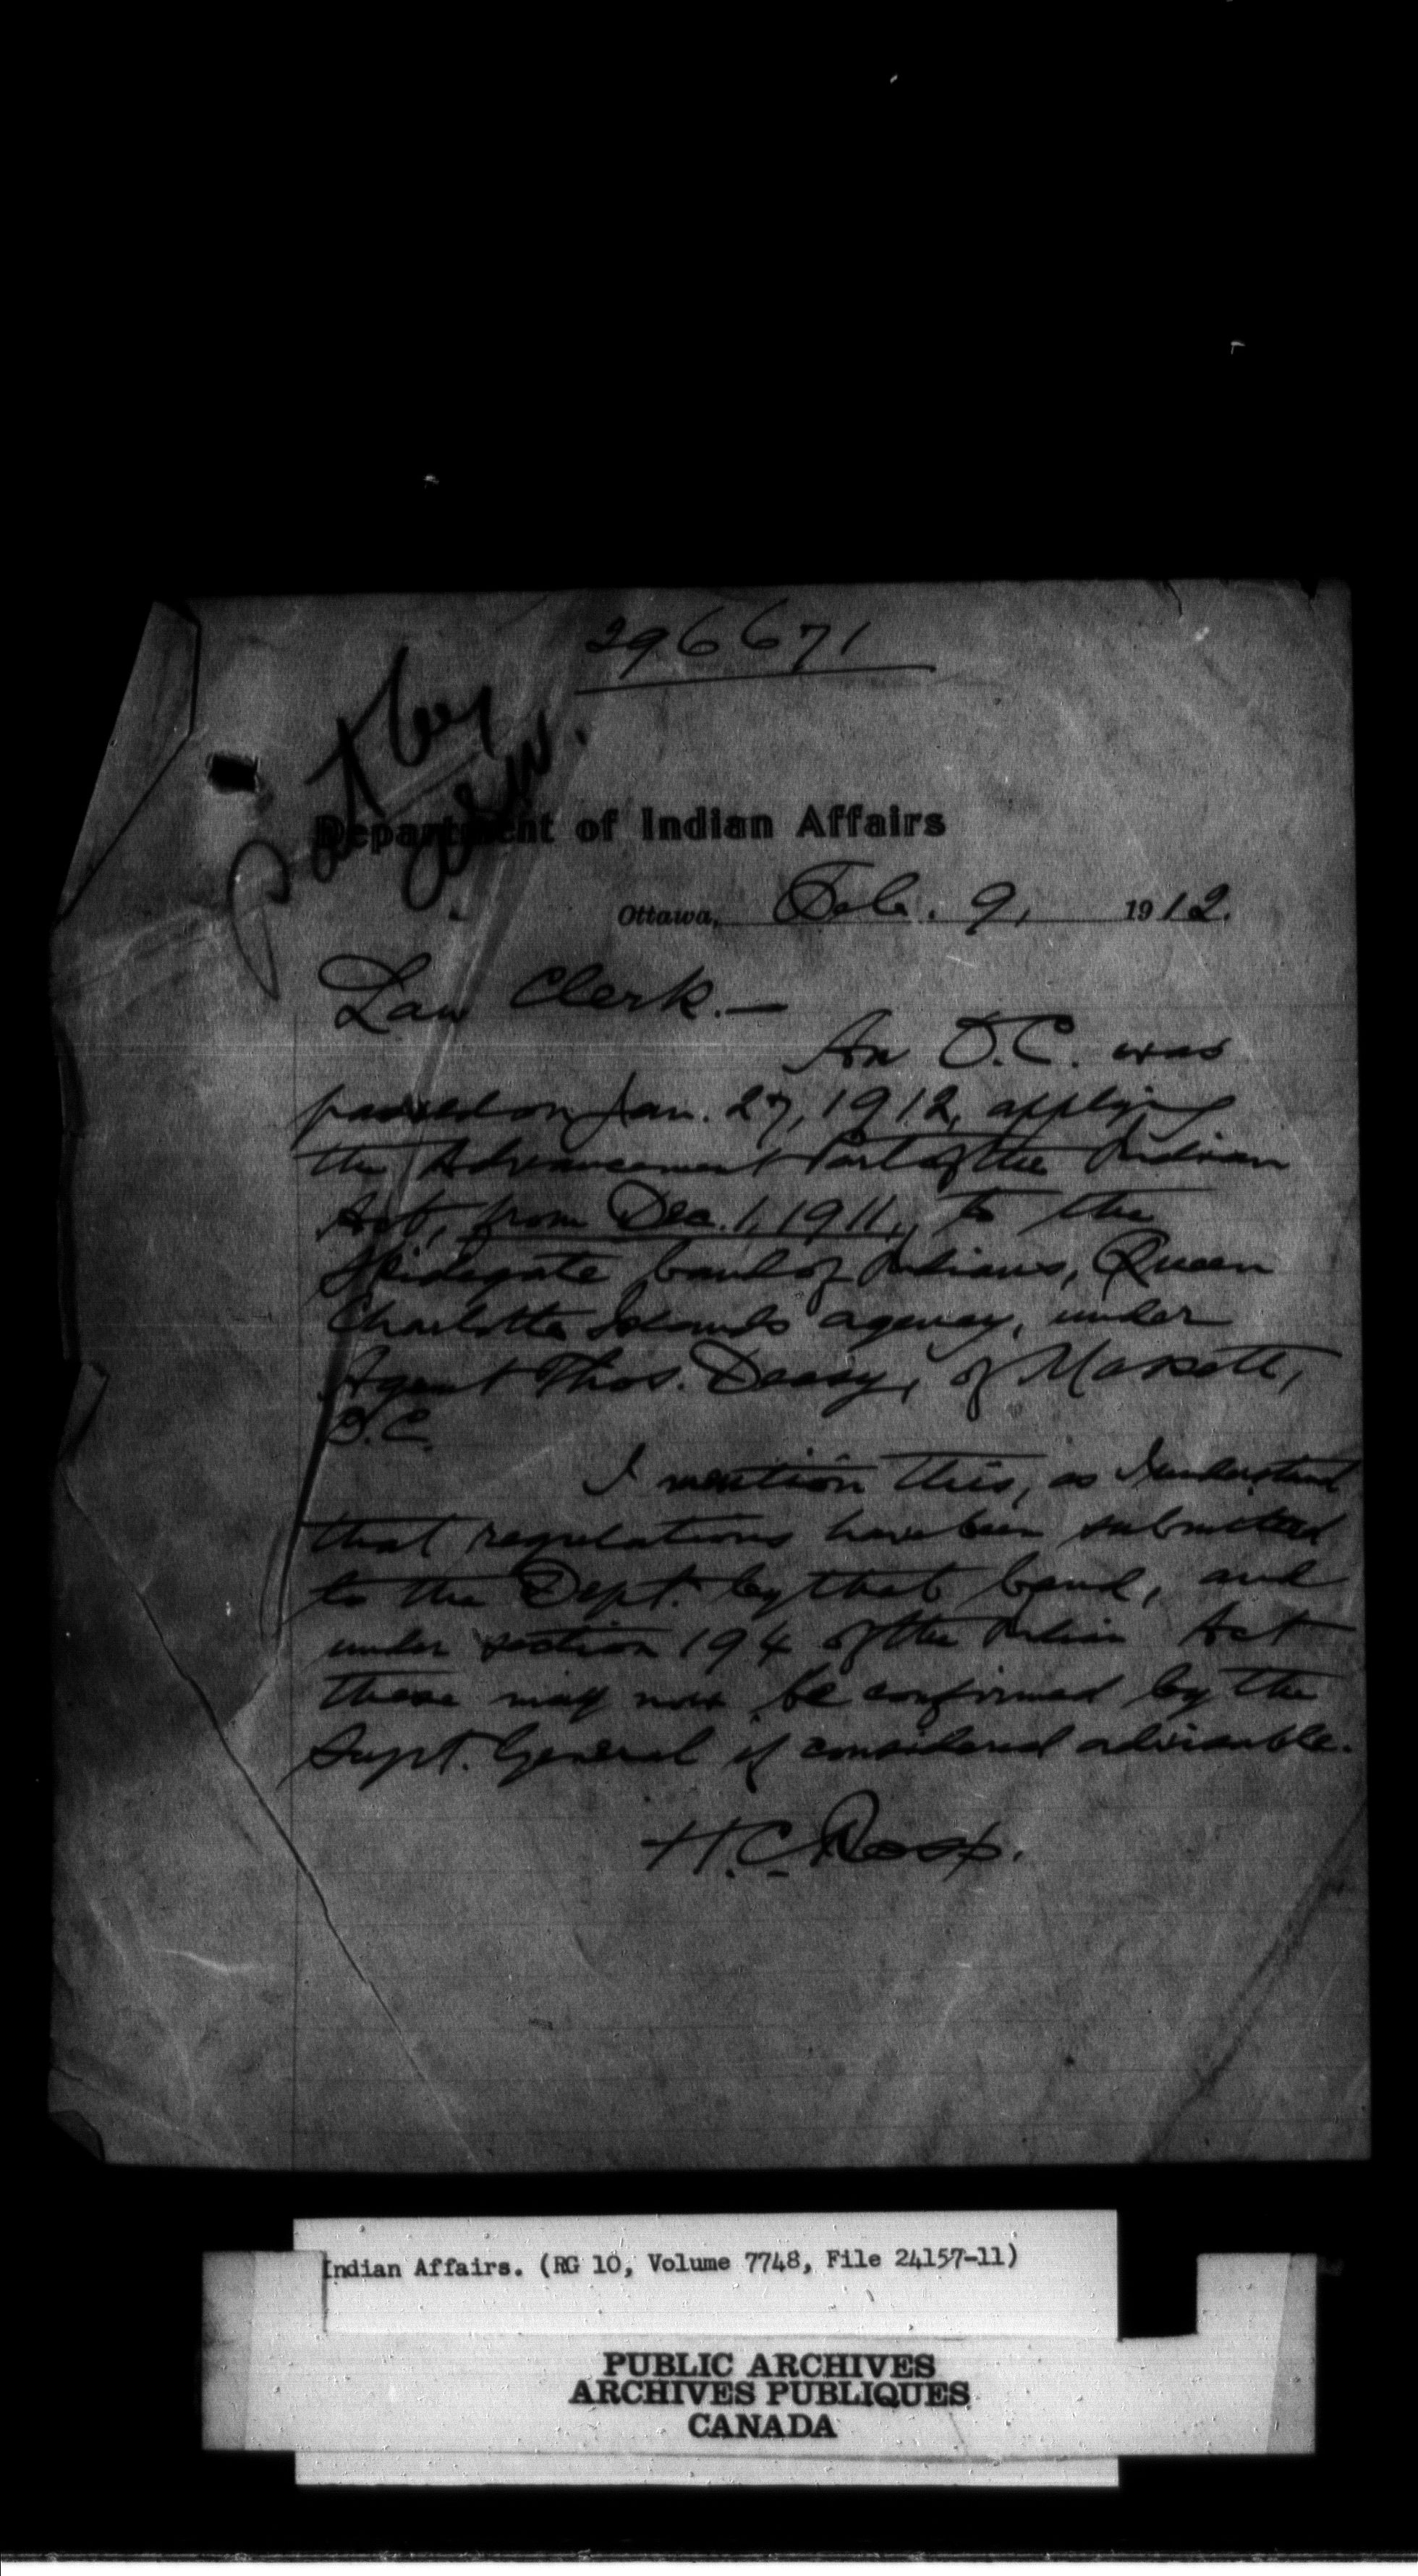 296671
Department of Indian Affairs
Ottawa, Feb. 9, 1912.
Law Clerk.—
An O.C. was
passed on Jan. 27, 1912, applying
the Advancement Part of the Indian
Act, from Dec. 1, 1911, to the
Skidegate band of Indians, Queen
Charlotte Islands agency, under
Agent Thos. Deasy, of Massett,
B.C.
I mention this, as I understand
that regulations have been submitted
to the Dept. by that band, and
under section 194 of the Indian Act
these may now be confirmed by the
Supt. General if considered advisable.
H.C. Ross.
Indian Affairs. (RG 10, Volume 7748, File 24157-11)
PUBLIC ARCHIVES
ARCHIVES PUBLIQUES
CANADA